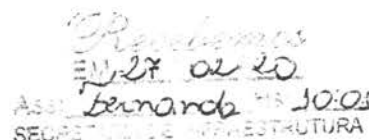 Recebemos
EM 27 02 20
Ass: Fernanda HS 10:01
SECRETARIA DE INFRAESTRUTURA